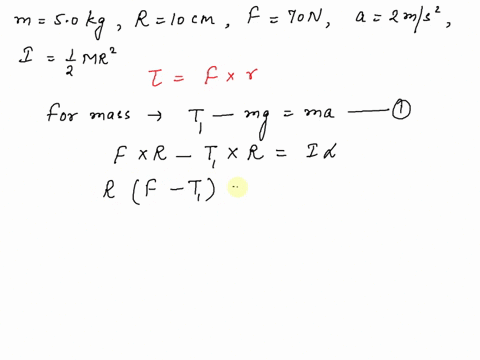 m = 5.0 kg, R = 10 cm, F = 70 N, a = 2 m/s²,
I = 1/2 MR²
τ = F × r
For mass → T₁ – mg = ma —— ①
F × R – T₁ × R = I α
R (F – T₁)